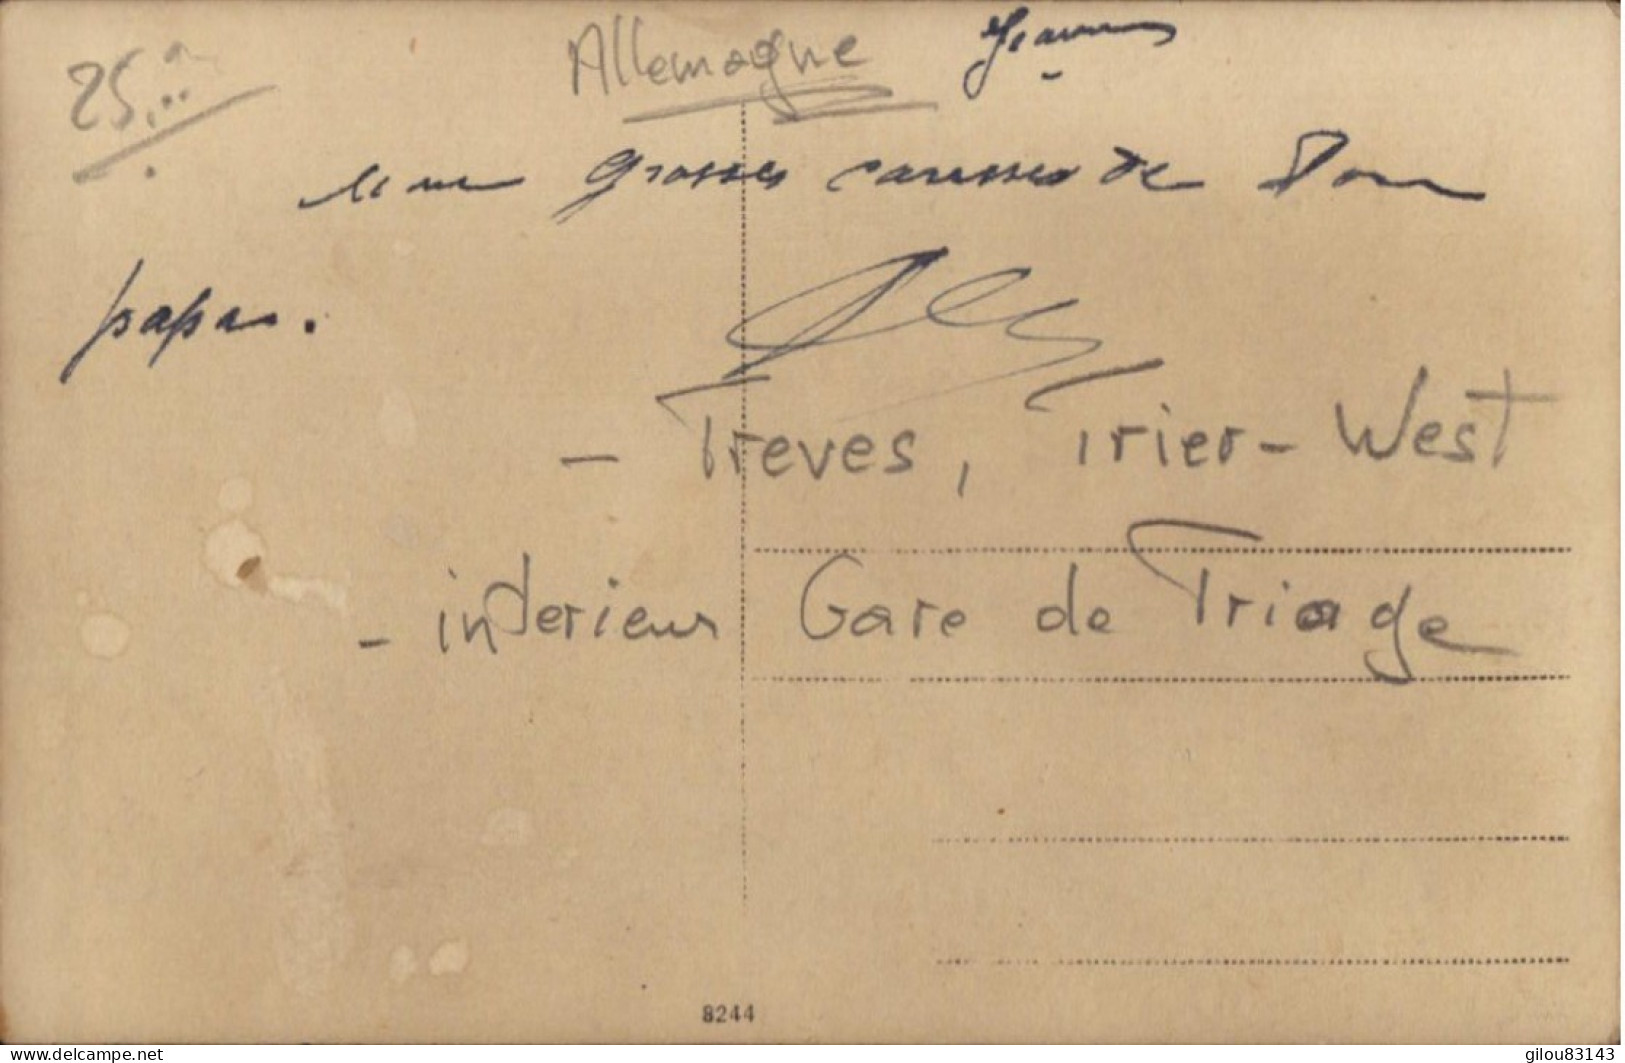 25.
Allemagne
grosses caresses de
papa.
- Treves, Trier-West
- interieur Gare de Triage
8244
www.delcampe.net
gilou83143